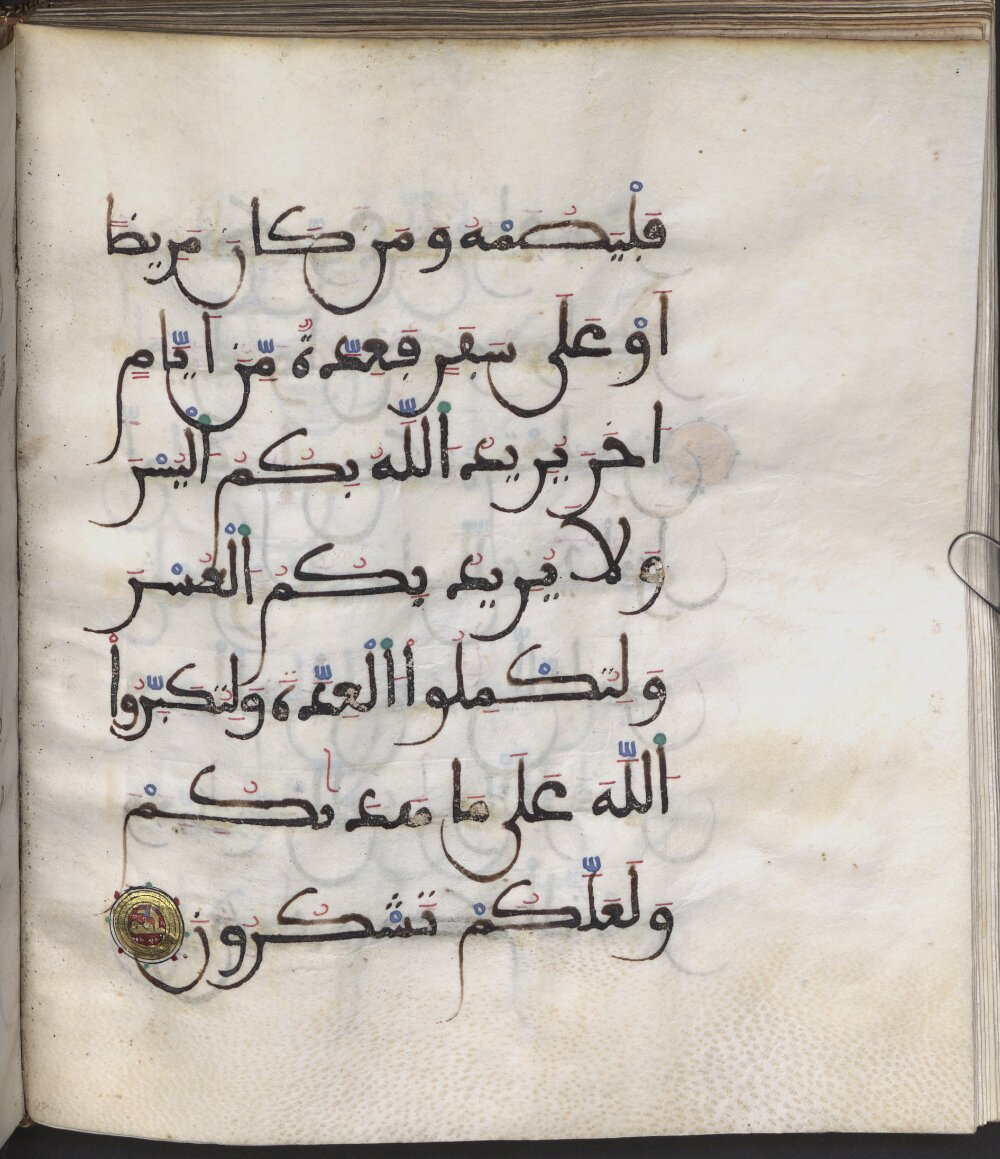 فَلْيَصُمْهُ وَمَن كَانَ مَرِيضًا
اَوْ عَلَىٰ سَفَرٍ فَعِدَّةٌ مِّنَ اَيَّامٍ
اُخَرَ يُرِيدُ اُللَّهُ بِكُمُ اُلْيُسْرَ
وَلَا يُرِيدُ بِكُمُ اُلْعُسْرَ
وَلِتُكْمِلُواْ اُلْعِدَّةَ وَلِتُكَبِّرُواْ
اُللَّهَ عَلَىٰ مَا هَدَىٰكُمْ
وَلَعَلَّكُمْ تَشْكُرُونَ